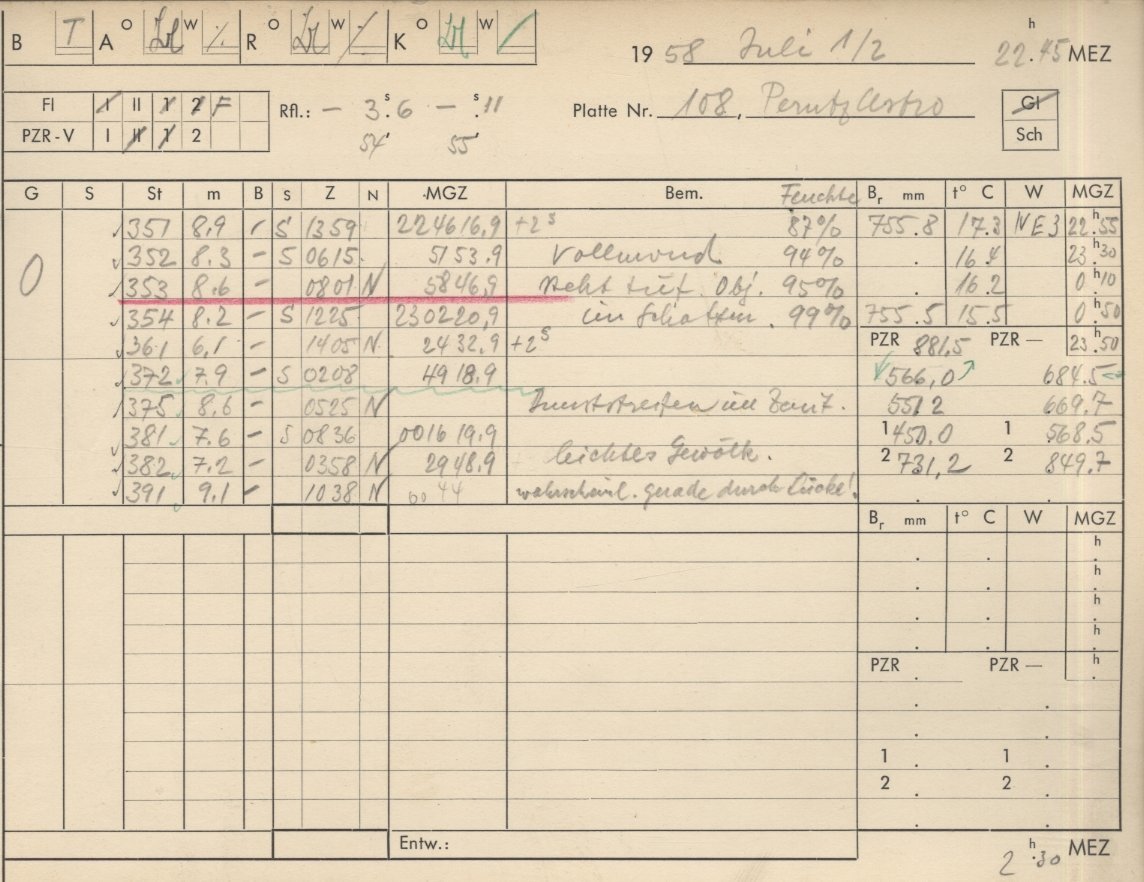 B T A O W ⁒ R O W ⁒ K O W
19 58 Juli 1/2 22 h . 45 MEZ
Fl I II 1 2 F
PZR-V I II 1 2
Rfl.: – 3 s . 6 – s . 11
54' 55'
Platte Nr. 108, Perutz Astro
Gl
Sch
G S St m B S Z N MGZ Bem. Feuchte Br mm t° C W MGZ
351 8.9 S 1359 224616,9 +2 s 87% 755.8 17.3 NE3 22 h . 55
0 352 8.3 – S 0615 5153.9 Vollmond 94% . 16.4 23 h . 30
353 8.6 – 0801 N 5846,9 steht tief. Obj. 95% . 16.2 0 h . 10
354 8.2 – S 1225 230220,9 im Schatten. 99% 755.5 15.5 0 h . 50
361 6,1 – 1405 N 2432.9 +2 s PZR 881,5 PZR – 23 h . 50
372 7.9 – S 0208 4918.9 566,0 684.5
375 8.6 – 0525 N Dunststreifen im Zenit. 551 2 669.7
381 7.6 – S 0836 001619.9 1 450.0 1 568.5
382 7.2 – 0358 N 2948.9 leichtes Gewölk. 2 731,2 2 849.7
391 9.1 – 1038 N 6044 wahrscheinl. gerade durch Lücke!
Br mm t° C W MGZ
h
h
h
h
PZR PZR – h
1 1
2 2
Entw.:
2 h . 30 MEZ